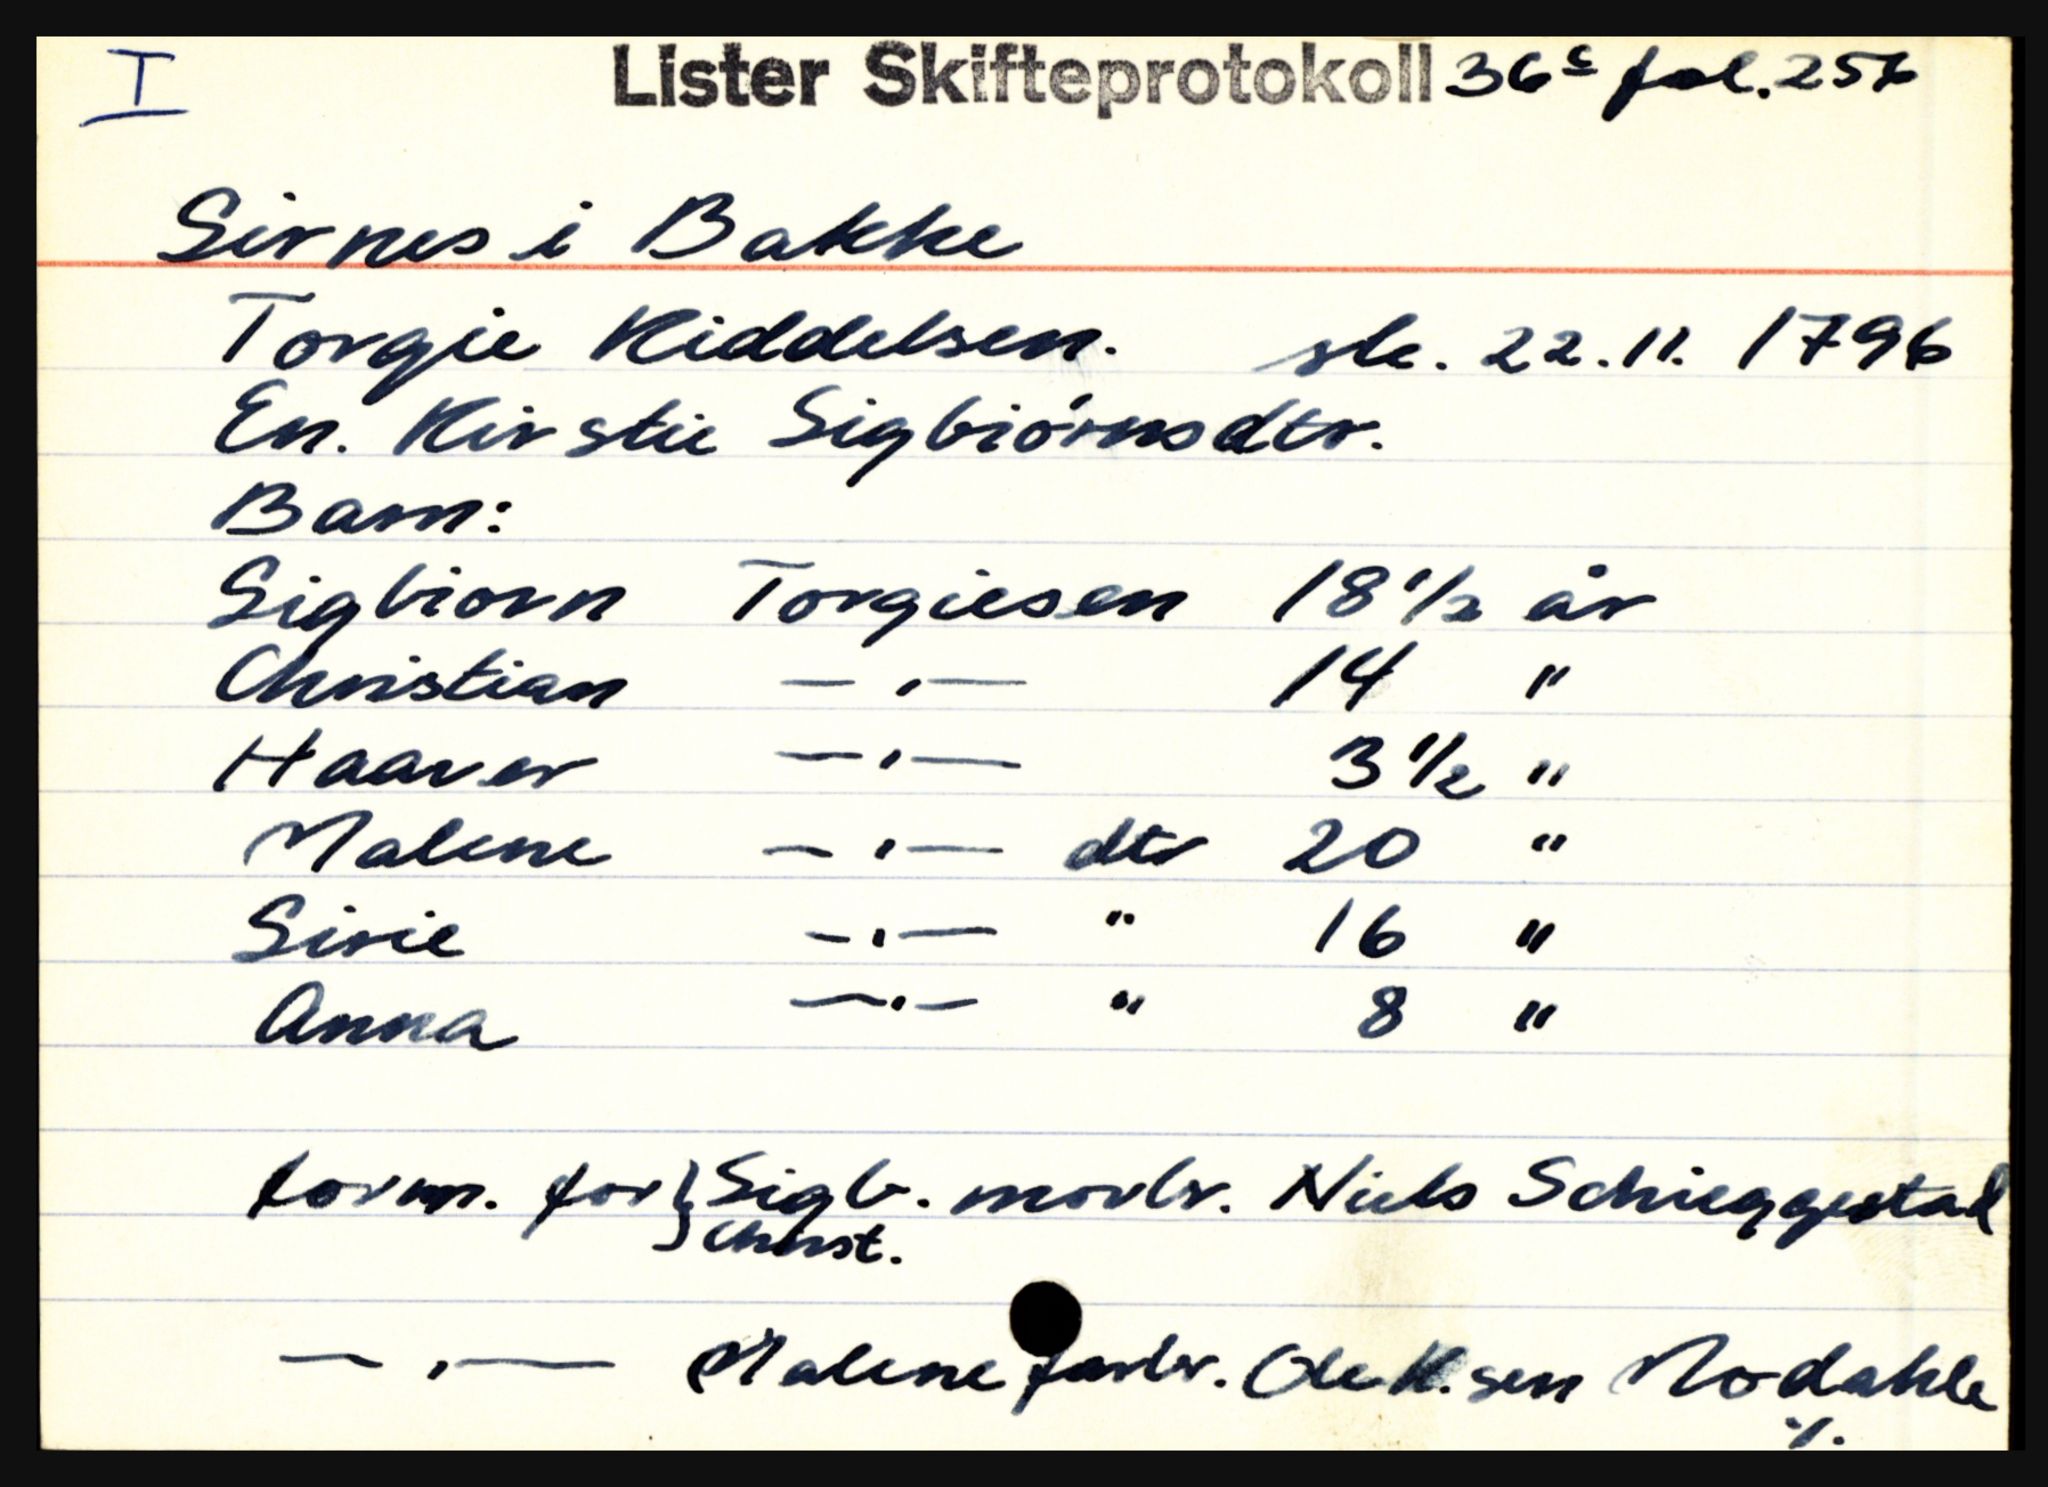 I Lister Skifteprotokoll 36c fol. 256
Sirnes i Bakke
Torgie Kiddelsen. sk. 22.11. 1796
En. Kirstie Sigbiórnsdtr.
Barn:
Sigbiorn Torgiesen 18 1/2 år
Christian — „ — 14 "
Haaver — „ — 3 1/2 "
Malene — „ — dtr 20 "
Sirie — „ — " 16 "
Anna — „ — " 8 "
form. for } Sigb. morbr. Niels Schieggestad
Christ.
— „ — Malene farbr. Ole K.sen Modahle
./.